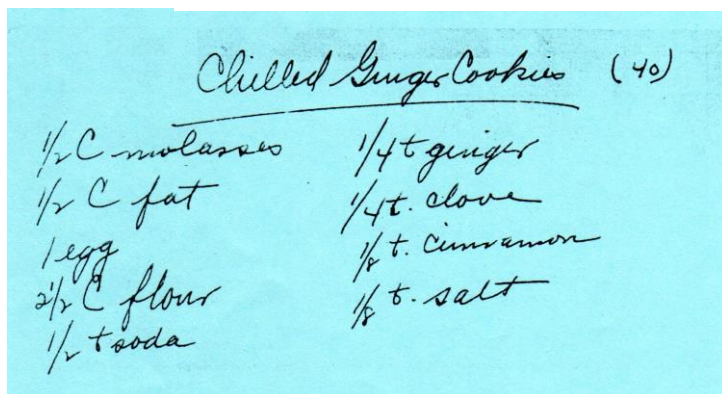 Chilled Ginger Cookies (40)
1/2 C molasses
1/2 C fat
1 egg
2 1/2 C flour
1/2 t soda
1/4 t ginger
1/4 t. clove
1/8 t. cinnamon
1/8 t. salt